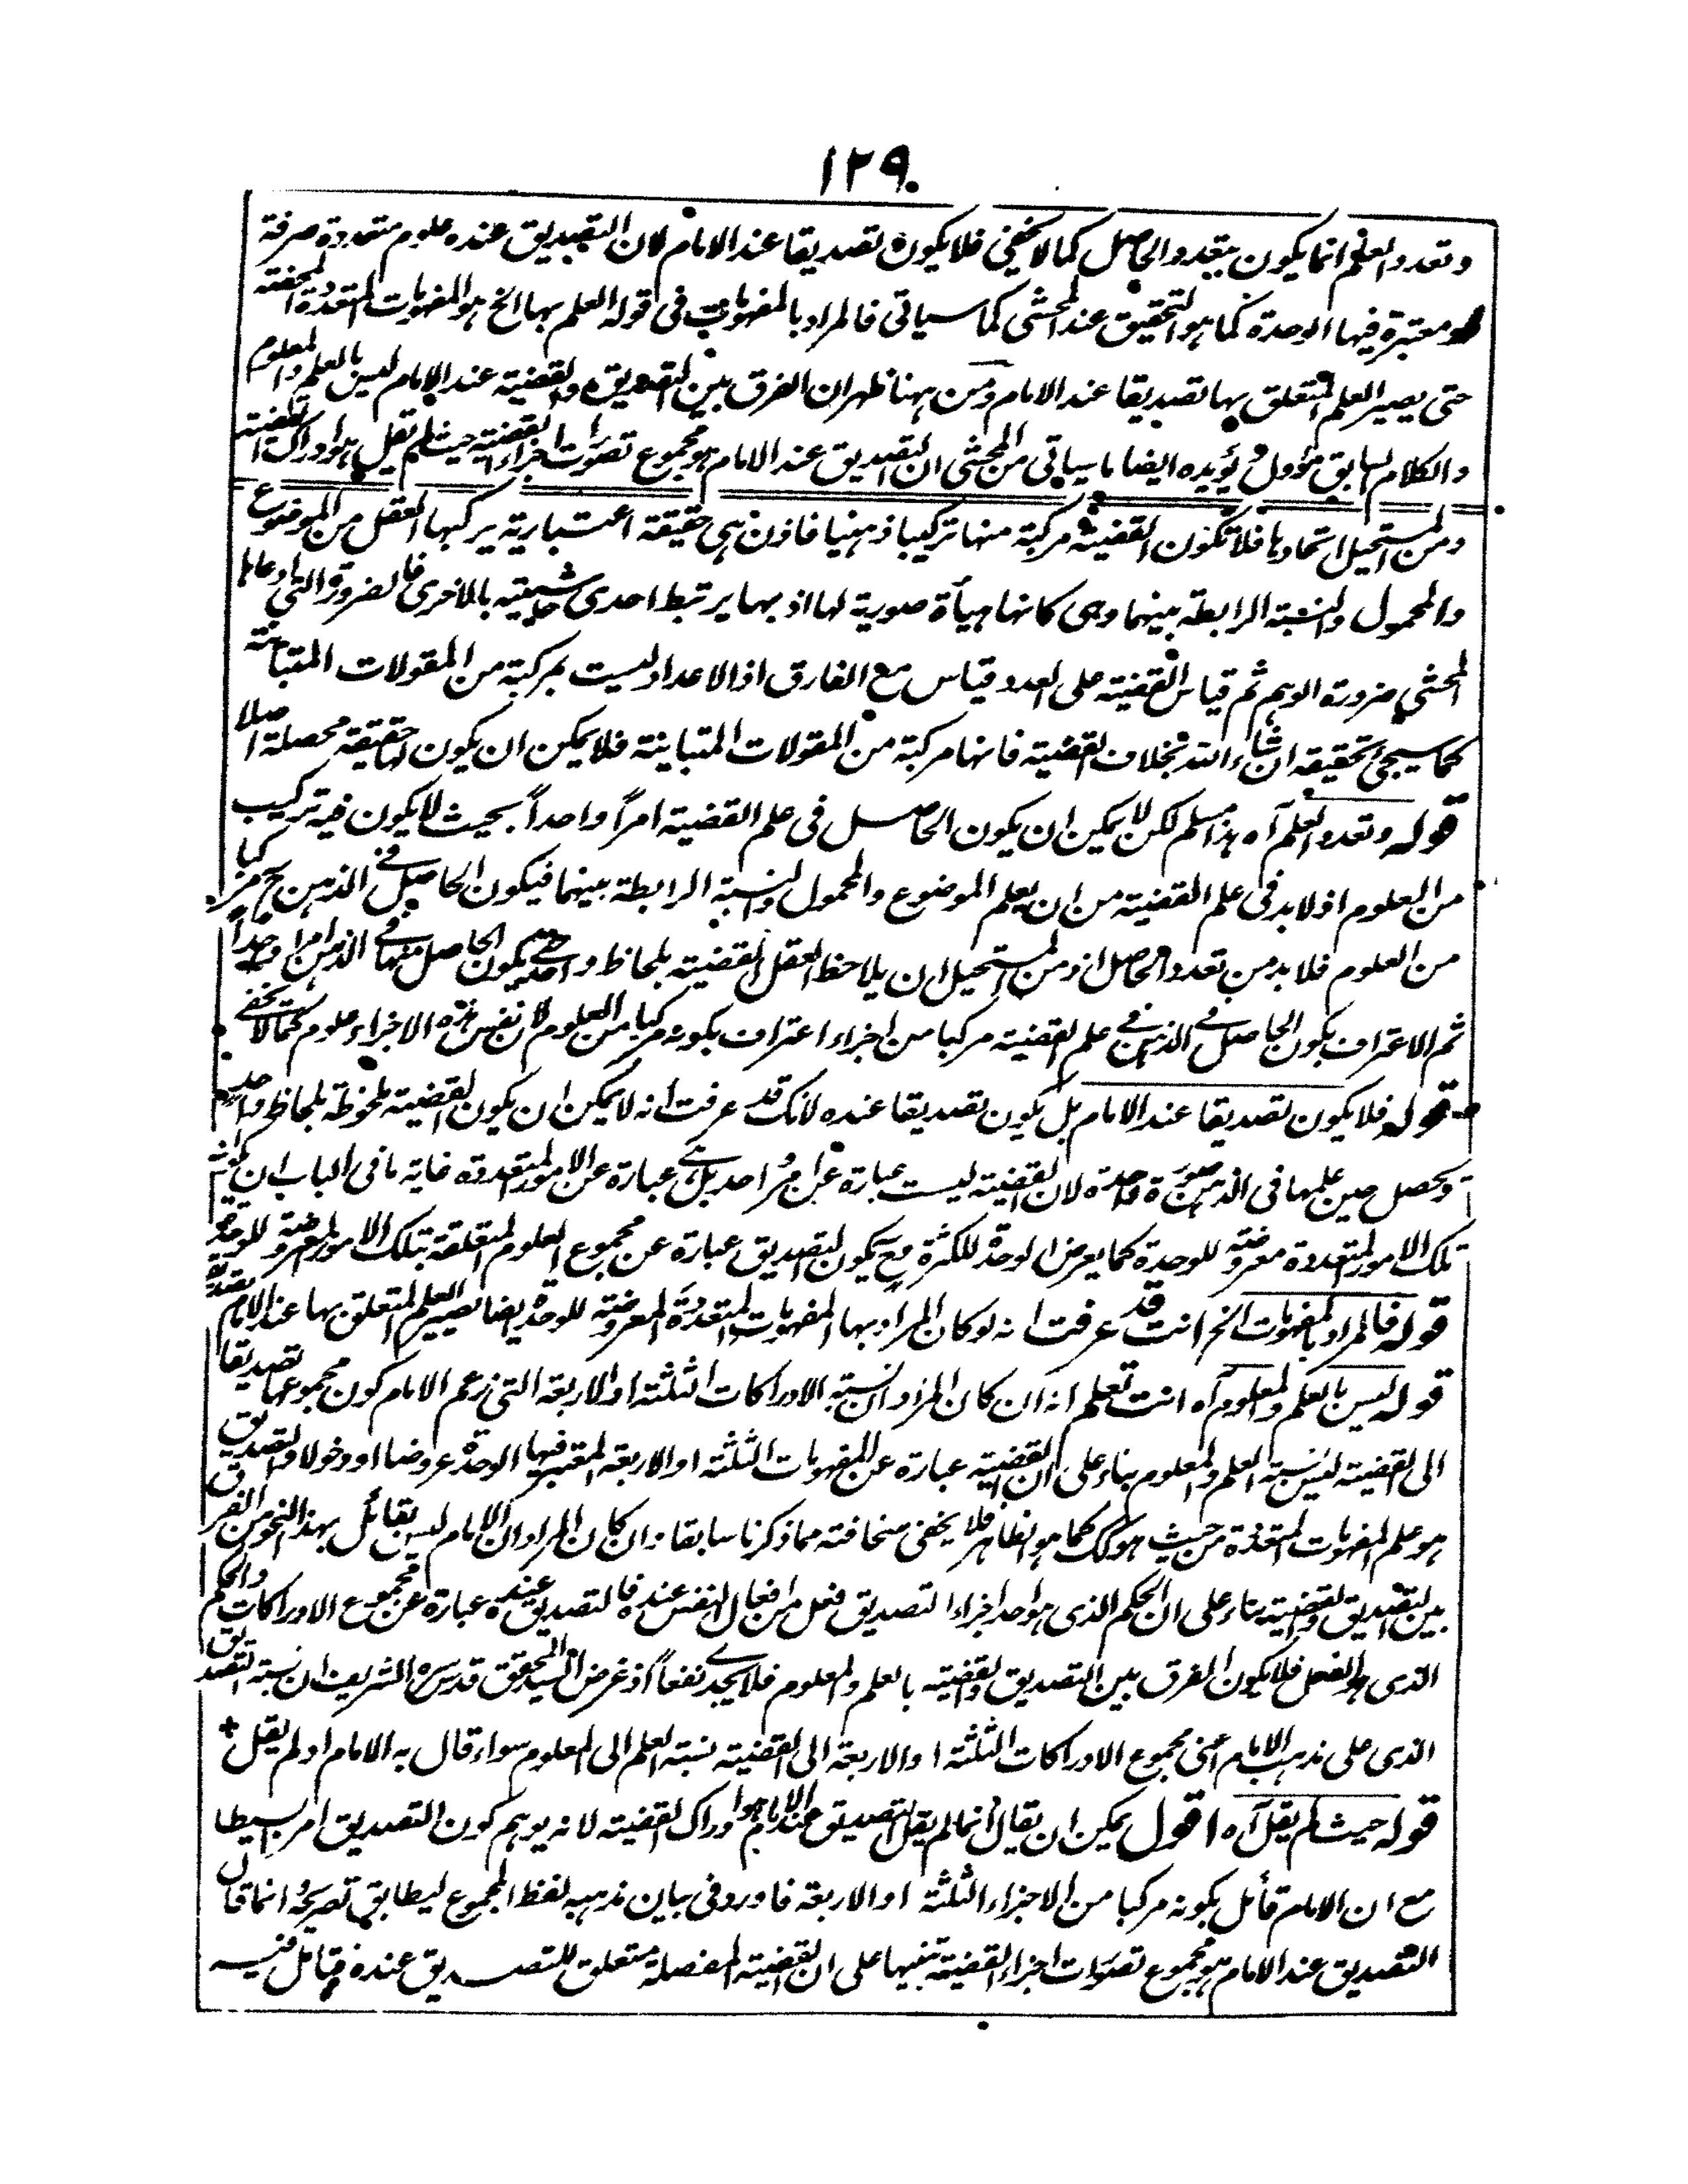 ١٢٩
وتعدد العلم انما يكون بتعدد الحاصل كما لا يخفى فلا يكون تصديقا عند الامام لان التصديق عنده علوم متعددة صرفة
او معتبرة فيها الوحدة كما هو التحقيق عند المحشى كما سياتى فالمراد بالمفهومات فى قوله العلم بها الخ هو المفهومات المتعددة المحضة
حتى يصير العلم المتعلق بها تصديقا عند الامام ومن ههنا ظهر ان الفرق بين التصديق والقضية عند الامام ليس بالعلم والمعلوم
والكلام السابق مؤول ويؤيده ايضا ما سياتى من المحشى ان التصديق عند الامام هو مجموع تصورات اجزاء القضية حيث لم يقل هو ادراك القضية
ومن المستحيل اتحادها فلا تكون القضية مركبة منها تركيبا ذهنيا فاذن هى حقيقة اعتبارية يركبها العقل من الموضوع
والمحمول والنسبة الرابطة بينهما وهى كانها هيأة صورية لها اذ بها يرتبط احدى حاشيتيه بالاخرى فالضرورة التى ادعاها
المحشى ضرورة الوهم ثم قياس القضية على العدد قياس مع الفارق اذ الاعداد ليست بمركبة من المقولات المتباينة
كما سيجئ تحقيقه ان شاء الله بخلاف القضية فانها مركبة من المقولات المتباينة فلا يمكن ان يكون لها حقيقة محصلة اصلا
قوله وتعدد العلم آه هذا مسلم لكن لا يمكن ان يكون الحاصل فى علم القضية امراً واحداً بحيث لا يكون فيه تركيب
من العلوم اذ لا بد فى علم القضية من ان يعلم الموضوع والمحمول والنسبة الرابطة بينهما فيكون الحاصل فى الذهن ح مركبا
من العلوم فلا بد من تعدد الحاصل اذ من المستحيل ان يلاحظ العقل القضية بلحاظ واحد حتى يكون الحاصل منها فى الذهن امرا واحداً
ثم الاعتراف بكون الحاصل فى الذهن فى علم القضية مركبا من اجزاء اعتراف بكونه مركبا من العلوم لان نفس هذه الاجزاء علوم كما لا يخفى
قوله فلا يكون تصديقا عند الامام بل يكون تصديقا عنده لانك قد عرفت انه لا يمكن ان يكون القضية ملحوظة بلحاظ واحد
ويحصل حين علمها فى الذهن صورة واحدة لان القضية ليست عبارة عن امر واحد بل هى عبارة عن الامور المتعددة غاية ما فى الباب ان يكون
تلك الامور المتعددة معروضة للوحدة كما يعرض الوحدة للكثرة وح يكون التصديق عبارة عن مجموع العلوم المتعلقة بتلك الامور المعروضة للوحدة
قوله فالمراد بالمفهومات الخ انت قد عرفت انه لو كان المراد بها المفهومات المتعددة المعروضة للوحدة ايضا يصير العلم المتعلق بها عند الامام تصديقا
قوله ليس بالعلم والمعلوم آه انت تعلم انه ان كان المراد ان نسبة الادراكات الثلثة او الاربعة التى زعم الامام كون مجموعها تصديقا
الى القضية ليس نسبة العلم والمعلوم بناء على ان القضية عبارة عن المفهومات الثلثة او الاربعة المعتبر فيها الوحدة عروضا او دخولا والتصديق
هو علم المفهومات المتعددة من حيث هو كك كما هو الظاهر فلا يخفى سخافته مما ذكرنا سابقا وان كان المراد ان الامام ليس بقائل بهذا النحو من الفرق
بين التصديق والقضية بناء على ان الحكم الذى هو احد اجزاء التصديق فعل من افعال النفس عنده فالتصديق عنده عبارة عن مجموع الادراكات والحكم
الذى هو الفعل فلا يكون الفرق بين التصديق والقضية بالعلم والمعلوم فلا يجدى نفعاً اذ غرض السيد المحقق قدس سره الشريف ان نسبة التصديق
الذى على مذهب الامام اعنى مجموع الادراكات الثلثة او الاربعة الى القضية نسبة العلم الى المعلوم سواء قال به الامام او لم يقل
قوله حيث لم يقل آه اقول يمكن ان يقال انما لم يقل التصديق عند الامام هو ادراك القضية لانه يوهم كون التصديق امرا بسيطا
مع ان الامام قائل بكونه مركبا من الاجزاء الثلثة او الاربعة فاورد فى بيان مذهبه لفظ المجموع ليطابق تصريحه وانما قال
التصديق عند الامام هو مجموع تصورات اجزاء القضية تنبيها على ان القضية المفصلة متعلق للتصديق عنده فتامل فيه